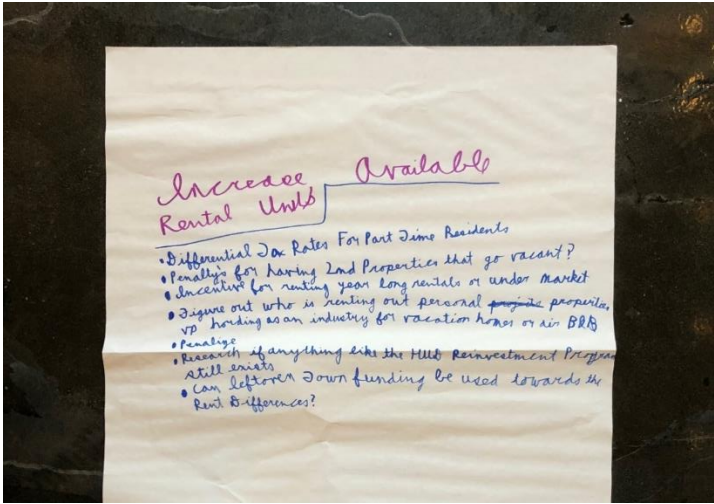 Increase Available
Rental Units
• Differential Tax Rates For Part Time Residents
• Penallys for having 2nd Properties that go vacant?
• Incentive for renting year long rentals or under market
• Figure out who is renting out personal properties
vs hording as an industry for vacation homes or air BRB
• Penalize
• Research if anything like the HUD Reinvestment Program
still exists
• Can leftover Town funding be used towards the
Rent Differences?